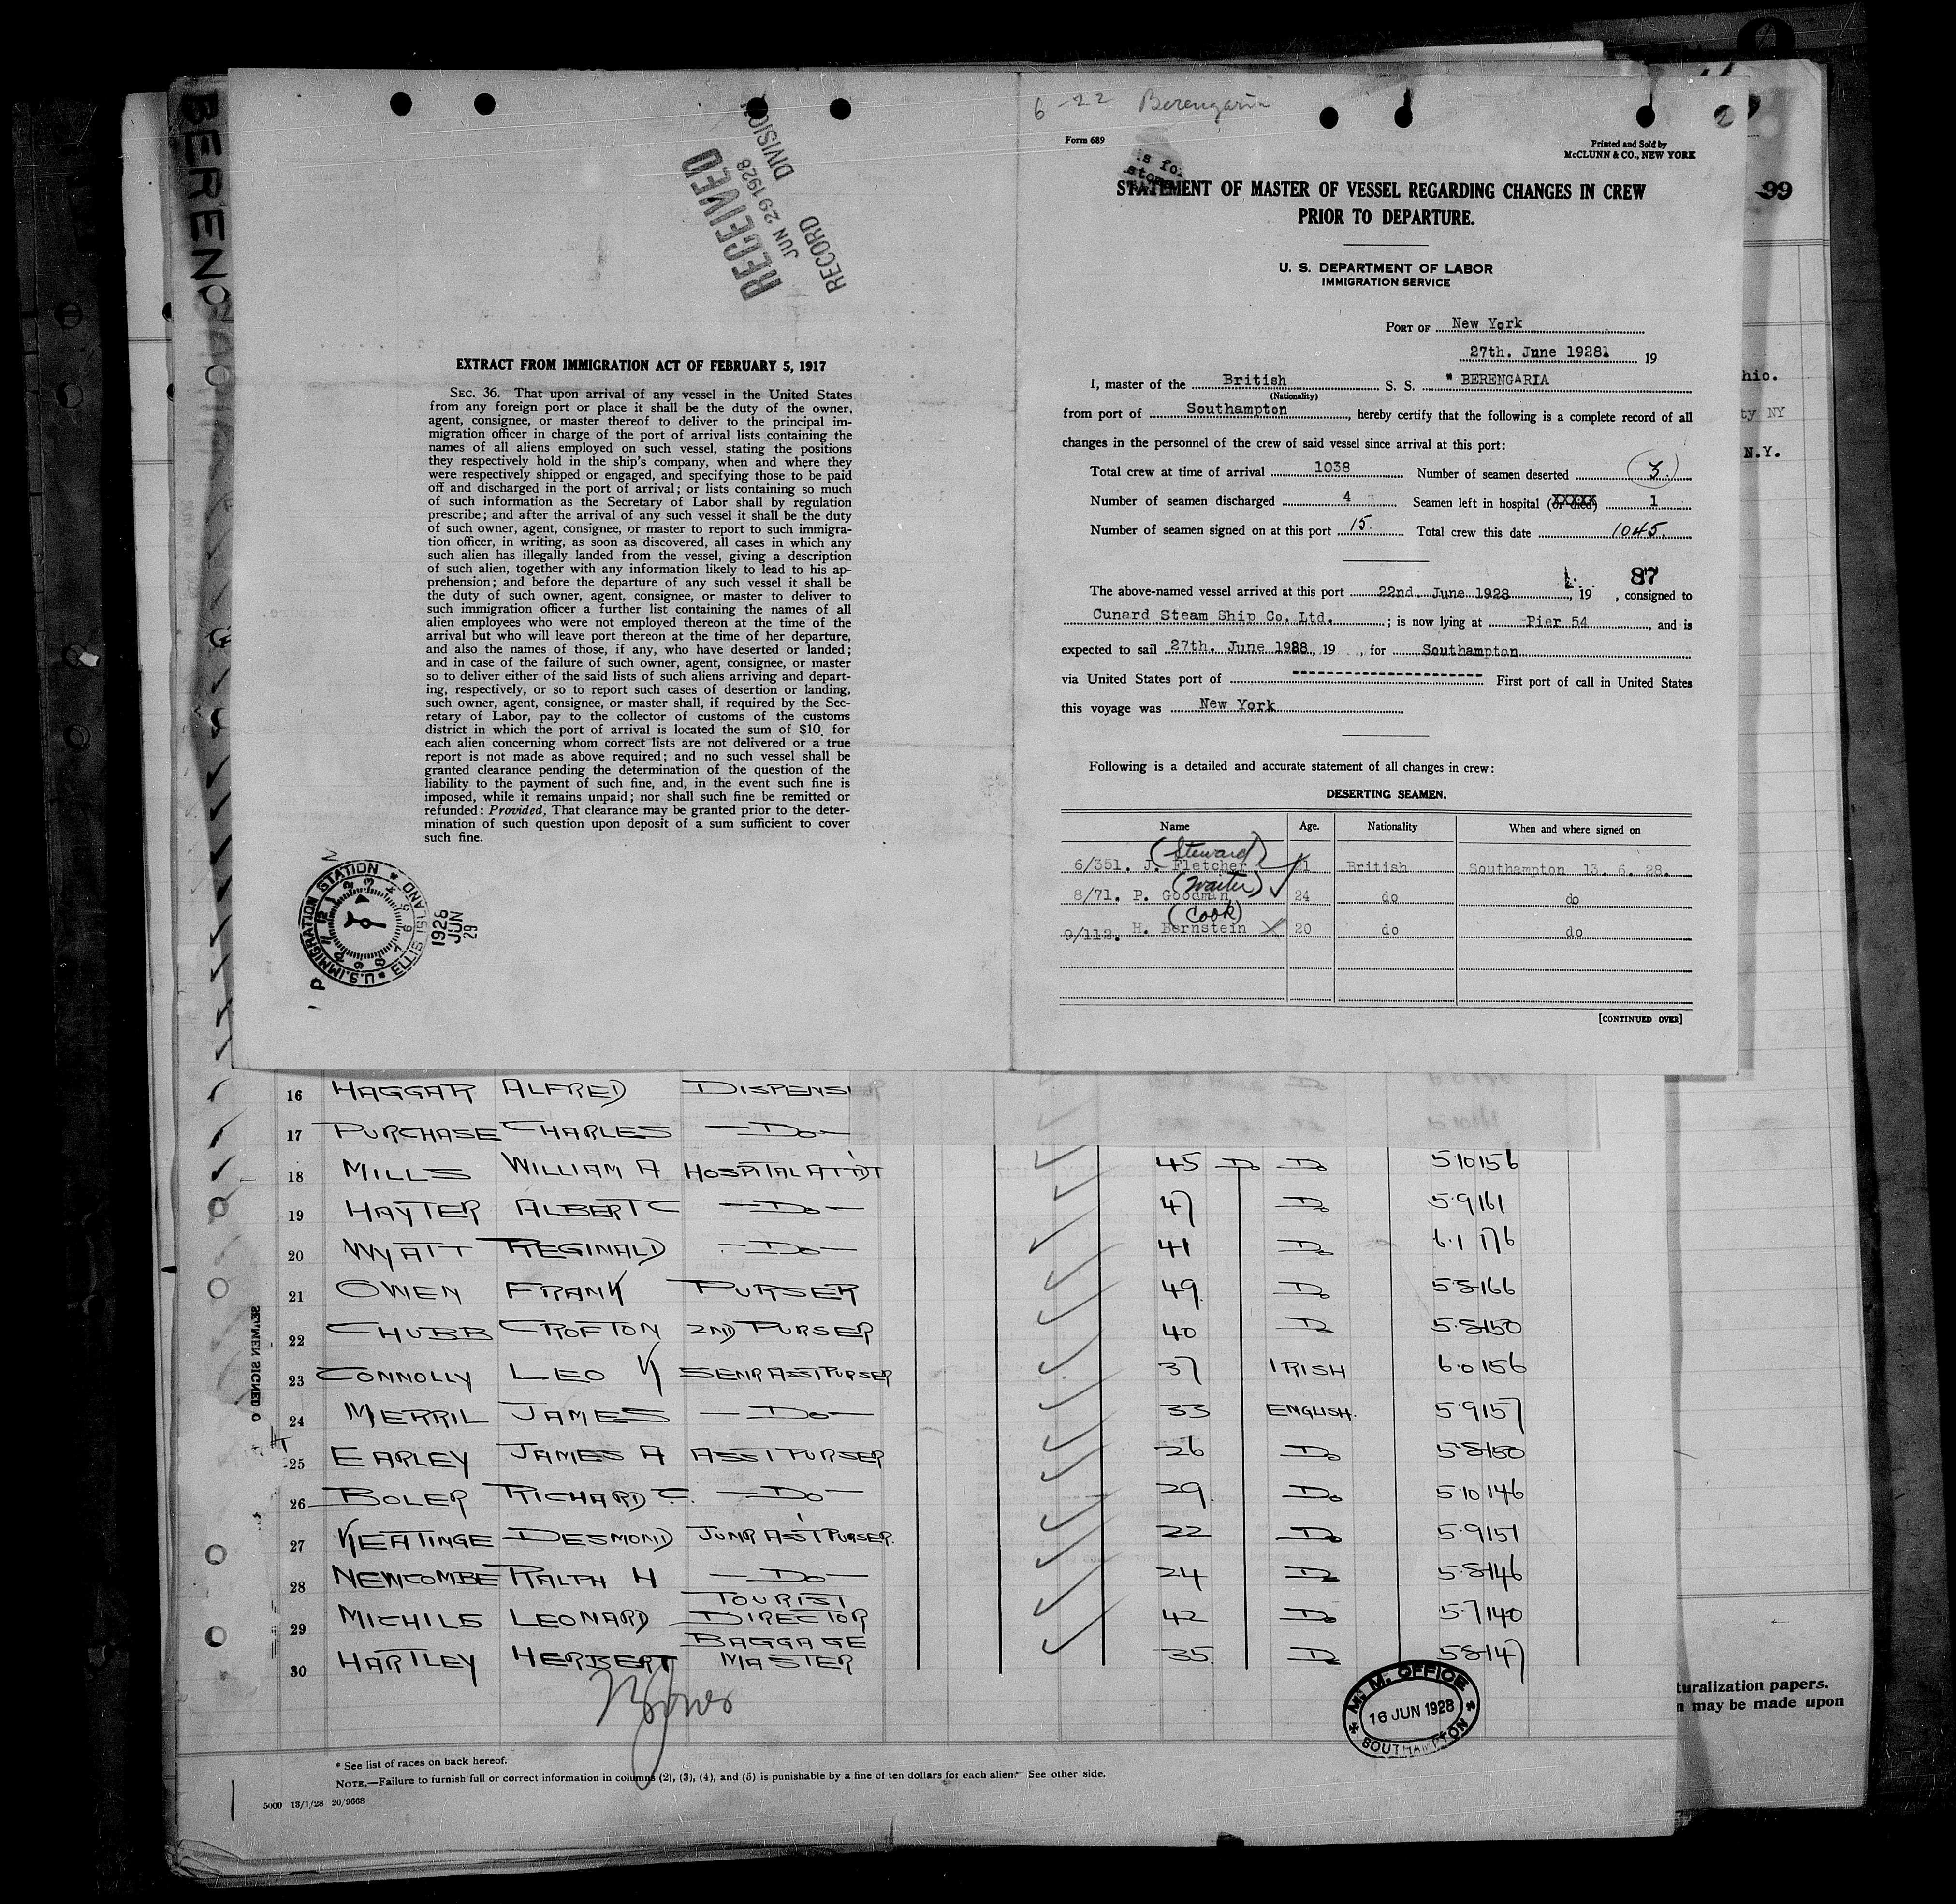 BERENGARIA
RECEIVED
JUN 29 1928
RECORD DIVISION
EXTRACT FROM IMMIGRATION ACT OF FEBRUARY 5, 1917
SEC. 36. That upon arrival of any vessel in the United States
from any foreign port or place it shall be the duty of the owner,
agent, consignee, or master thereof to deliver to the principal im-
migration officer in charge of the port of arrival lists containing the
names of all aliens employed on such vessel, stating the positions
they respectively hold in the ship's company, when and where they
were respectively shipped or engaged, and specifying those to be paid
off and discharged in the port of arrival; or lists containing so much
of such information as the Secretary of Labor shall by regulation
prescribe; and after the arrival of any such vessel it shall be the duty
of such owner, agent, consignee, or master to report to such immigra-
tion officer, in writing, as soon as discovered, all cases in which any
such alien has illegally landed from the vessel, giving a description
of such alien, together with any information likely to lead to his ap-
prehension; and before the departure of any such vessel it shall be
the duty of such owner, agent, consignee, or master to deliver to
such immigration officer a further list containing the names of all
alien employees who were not employed thereon at the time of the
arrival but who will leave port thereon at the time of her departure,
and also the names of those, if any, who have deserted or landed;
and in case of the failure of such owner, agent, consignee, or master
so to deliver either of the said lists of such aliens arriving and depart-
ing, respectively, or so to report such cases of desertion or landing,
such owner, agent, consignee, or master shall, if required by the Sec-
retary of Labor, pay to the collector of customs of the customs
district in which the port of arrival is located the sum of $10 for
each alien concerning whom correct lists are not delivered or a true
report is not made as above required; and no such vessel shall be
granted clearance pending the determination of the question of the
liability to the payment of such fine, and, in the event such fine is
imposed, while it remains unpaid; nor shall such fine be remitted or
refunded: Provided, That clearance may be granted prior to the deter-
mination of such question upon deposit of a sum sufficient to cover
such fine.
U.S. IMMIGRATION STATION * ELLIS ISLAND *
1928 JUN 29
6-22 Berengaria
Form 689
Printed and Sold by
McCLUNN & CO., NEW YORK
STATEMENT OF MASTER OF VESSEL REGARDING CHANGES IN CREW
PRIOR TO DEPARTURE.
U. S. DEPARTMENT OF LABOR
IMMIGRATION SERVICE
PORT OF New York
27th. June 19281 19
I, master of the British S. S. " BERENGARIA
(Nationality)
from port of Southampton, hereby certify that the following is a complete record of all
changes in the personnel of the crew of said vessel since arrival at this port:
Total crew at time of arrival 1038 Number of seamen deserted 3.
Number of seamen discharged 4 Seamen left in hospital (or died) 1
Number of seamen signed on at this port 15. Total crew this date 1045.
87
The above-named vessel arrived at this port 22nd. June 1928, 19 , consigned to
Cunard Steam Ship Co. Ltd. ; is now lying at Pier 54, and is
expected to sail 27th. June 1928, 19 , for Southampton
via United States port of ---------- First port of call in United States
this voyage was New York
Following is a detailed and accurate statement of all changes in crew:
DESERTING SEAMEN.
Name Age. Nationality When and where signed on
(Steward)
6/351. J. Fletcher 21 British Southampton 13. 6. 28.
(Waiter)
8/71. P. Goodman 24 do do
(Cook)
9/112. H. Bernstein 20 do do
[CONTINUED OVER]
99
hio.
ty NY
N.Y.
16 HAGGAR ALFRED DISPENSER
17 PURCHASE CHARLES —Do—
18 MILLS WILLIAM A HOSPITAL ATTDT 45 Do Do 5.10 156
19 HAYTER ALBERT C —Do— 47 Do 5.9 161
20 WYATT REGINALD —Do— 41 Do 6.1 176
21 OWEN FRANK PURSER 49. Do 5.8 166
22 CHUBB CROFTON 2ND PURSER 40 Do 5.8 150
23 CONNOLLY LEO K SENR ASST PURSER 37 IRISH 6.0 156
24 MERRIL JAMES —Do— 33 ENGLISH. 5.9 157
25 EARLEY JAMES A ASST PURSER 26 Do 5.8 150
26 BOLER RICHARD C. —Do— 29. Do 5.10 146
27 KEATINGE DESMOND JUNR ASST PURSER. 22 Do 5.9 151
28 NEWCOMBE RALPH H —Do— 24 Do 5.8 146
29 MICHILS LEONARD TOURIST DIRECTOR 42 Do 5.7 140
30 HARTLEY HERBERT BAGGAGE MASTER 35. Do 5.8 147
M. M. OFFICE
16 JUN 1928
SOUTHAMPTON
turalization papers.
n may be made upon
* See list of races on back hereof.
NOTE.—Failure to furnish full or correct information in columns (2), (3), (4), and (5) is punishable by a fine of ten dollars for each alien. See other side.
5000 13/1/28 20/9668